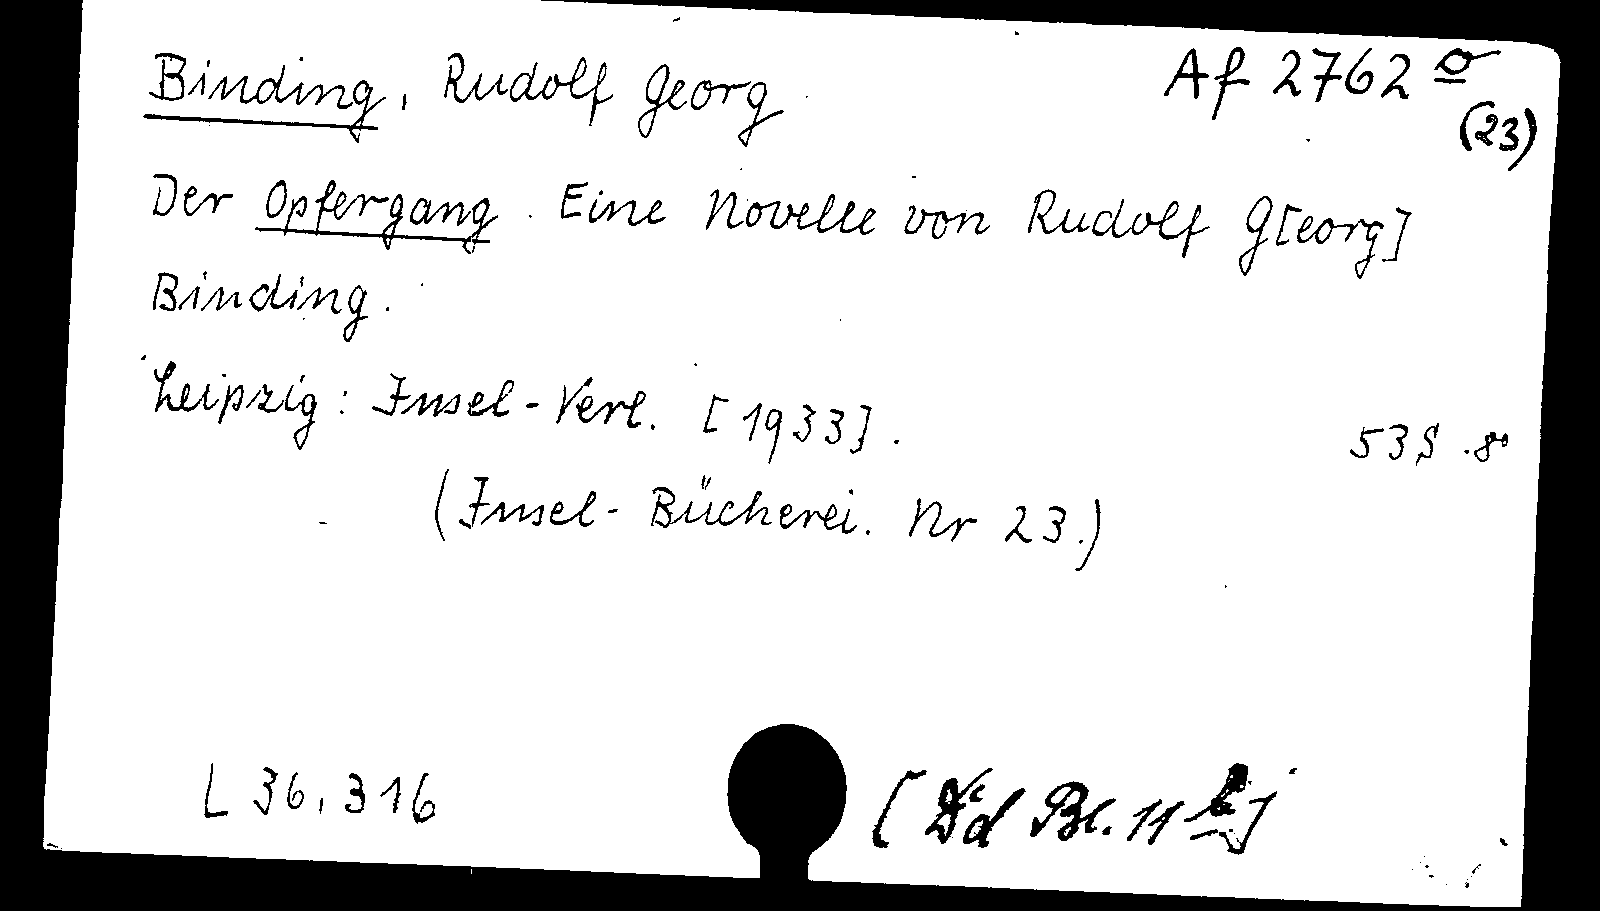 Binding, Rudolf Georg
Af 2762 o
(23)
Der Opfergang. Eine Novelle von Rudolf G[eorg]
Binding.
Leipzig: Insel-Verl. [1933].
53 S. 8°
(Insel-Bücherei. Nr 23.)
L 36, 316
[Dd Bl. 11 b]